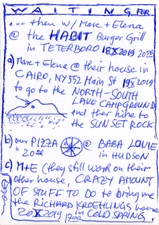 WAITING FOR
... then w/ Marc + Elena
@ the HABIT Burger Grill
in TETERBORO 18X2019 20:55
a) Marc + Elena @ their house in
CAIRO, NY 552 Main St 19X2019
to go to the NORTH-SOUTH
LAKE CAMPGROUND
and then hike to
the SUNSET ROCK
b) our PIZZA @ BABA LOUIE
20:55 in HUDSON
c) M+E (they still work on their
other house, CRAZY AMOUNT
OF STUFF TO DO to bring me
the RICHARD KROEHLING home
20X2019 in COLD SPRING